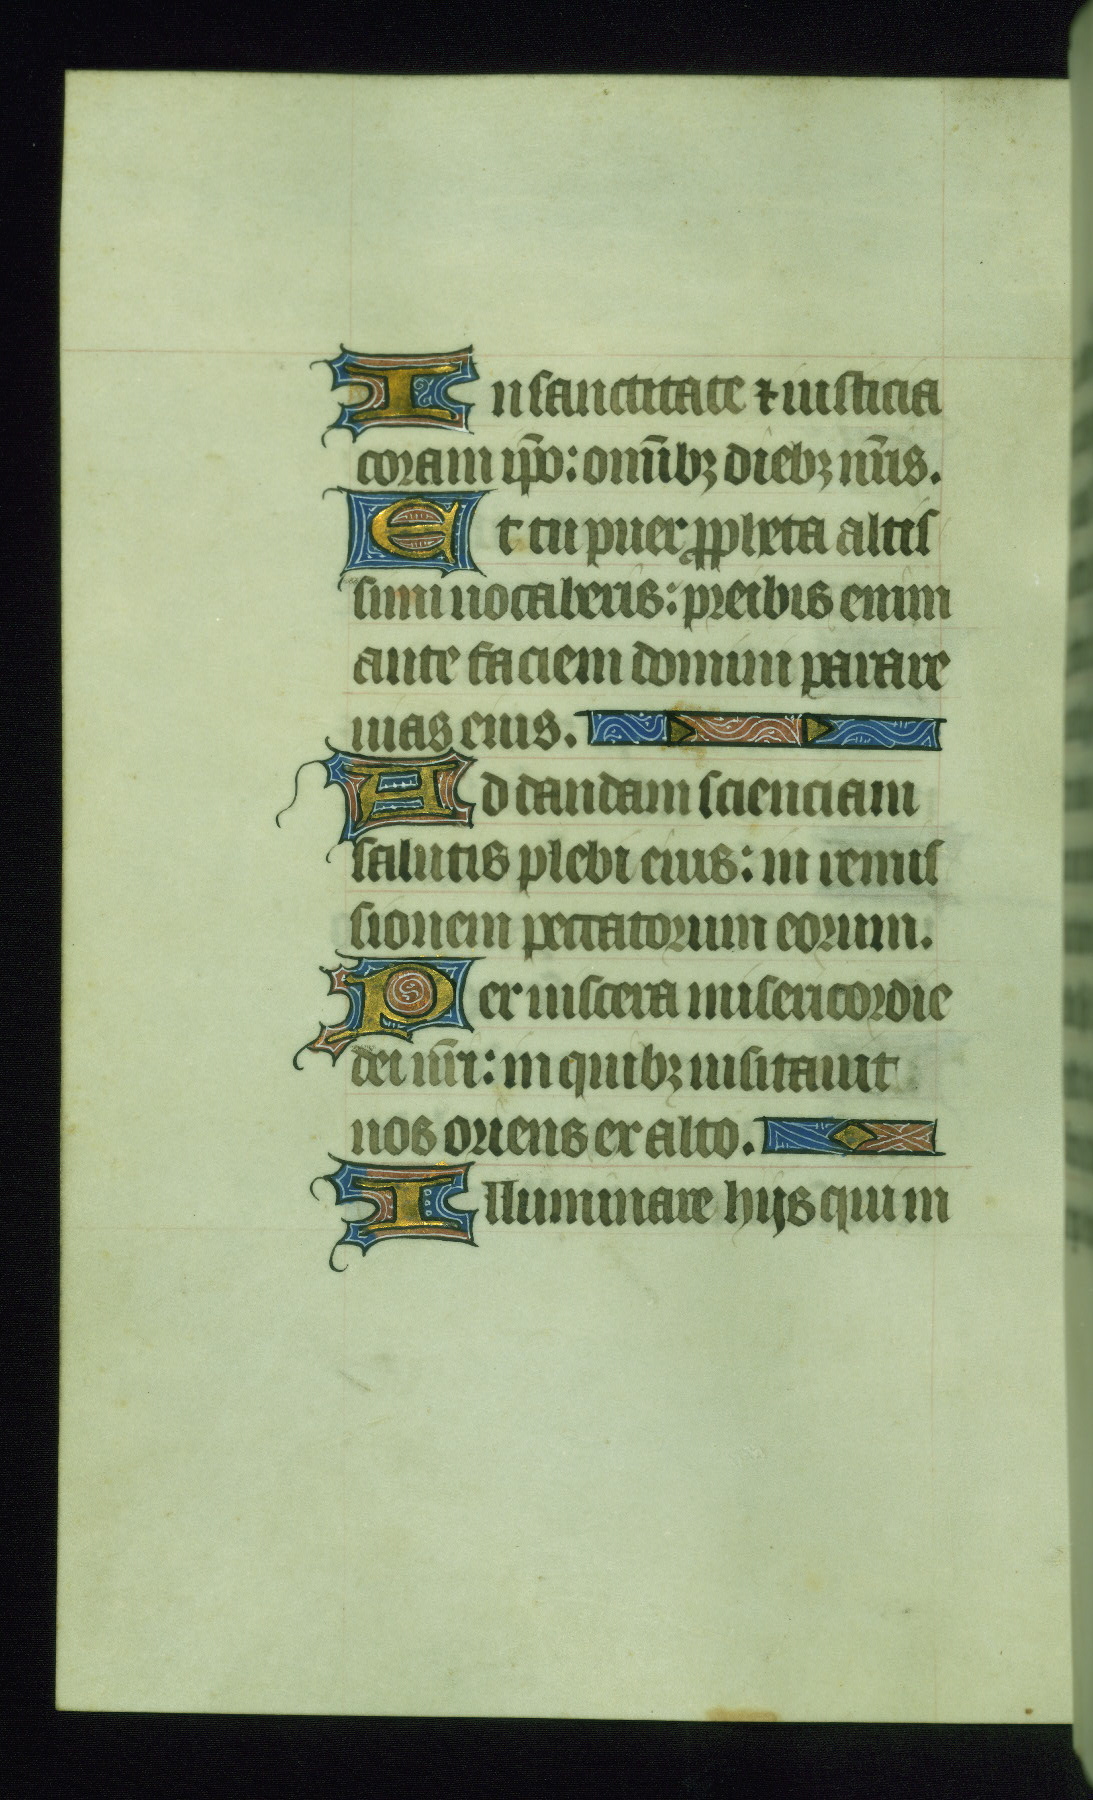 In sanctitate ⁊ iusticia
coram ip̄o: om̄ibꝫ diebꝫ nr̄is.
Et tu puer ꝓpheta altis
simi uocaberis: preibis enim
ante faciem domini parare
uias eius.
Ad dandam scienciam
salutis plebi eius: in remis
sionem peccatorum eorum.
Per uiscera misericordie
dei nr̄i: in quibꝫ uisitauit
nos oriens ex alto.
Illuminare hijs qui in